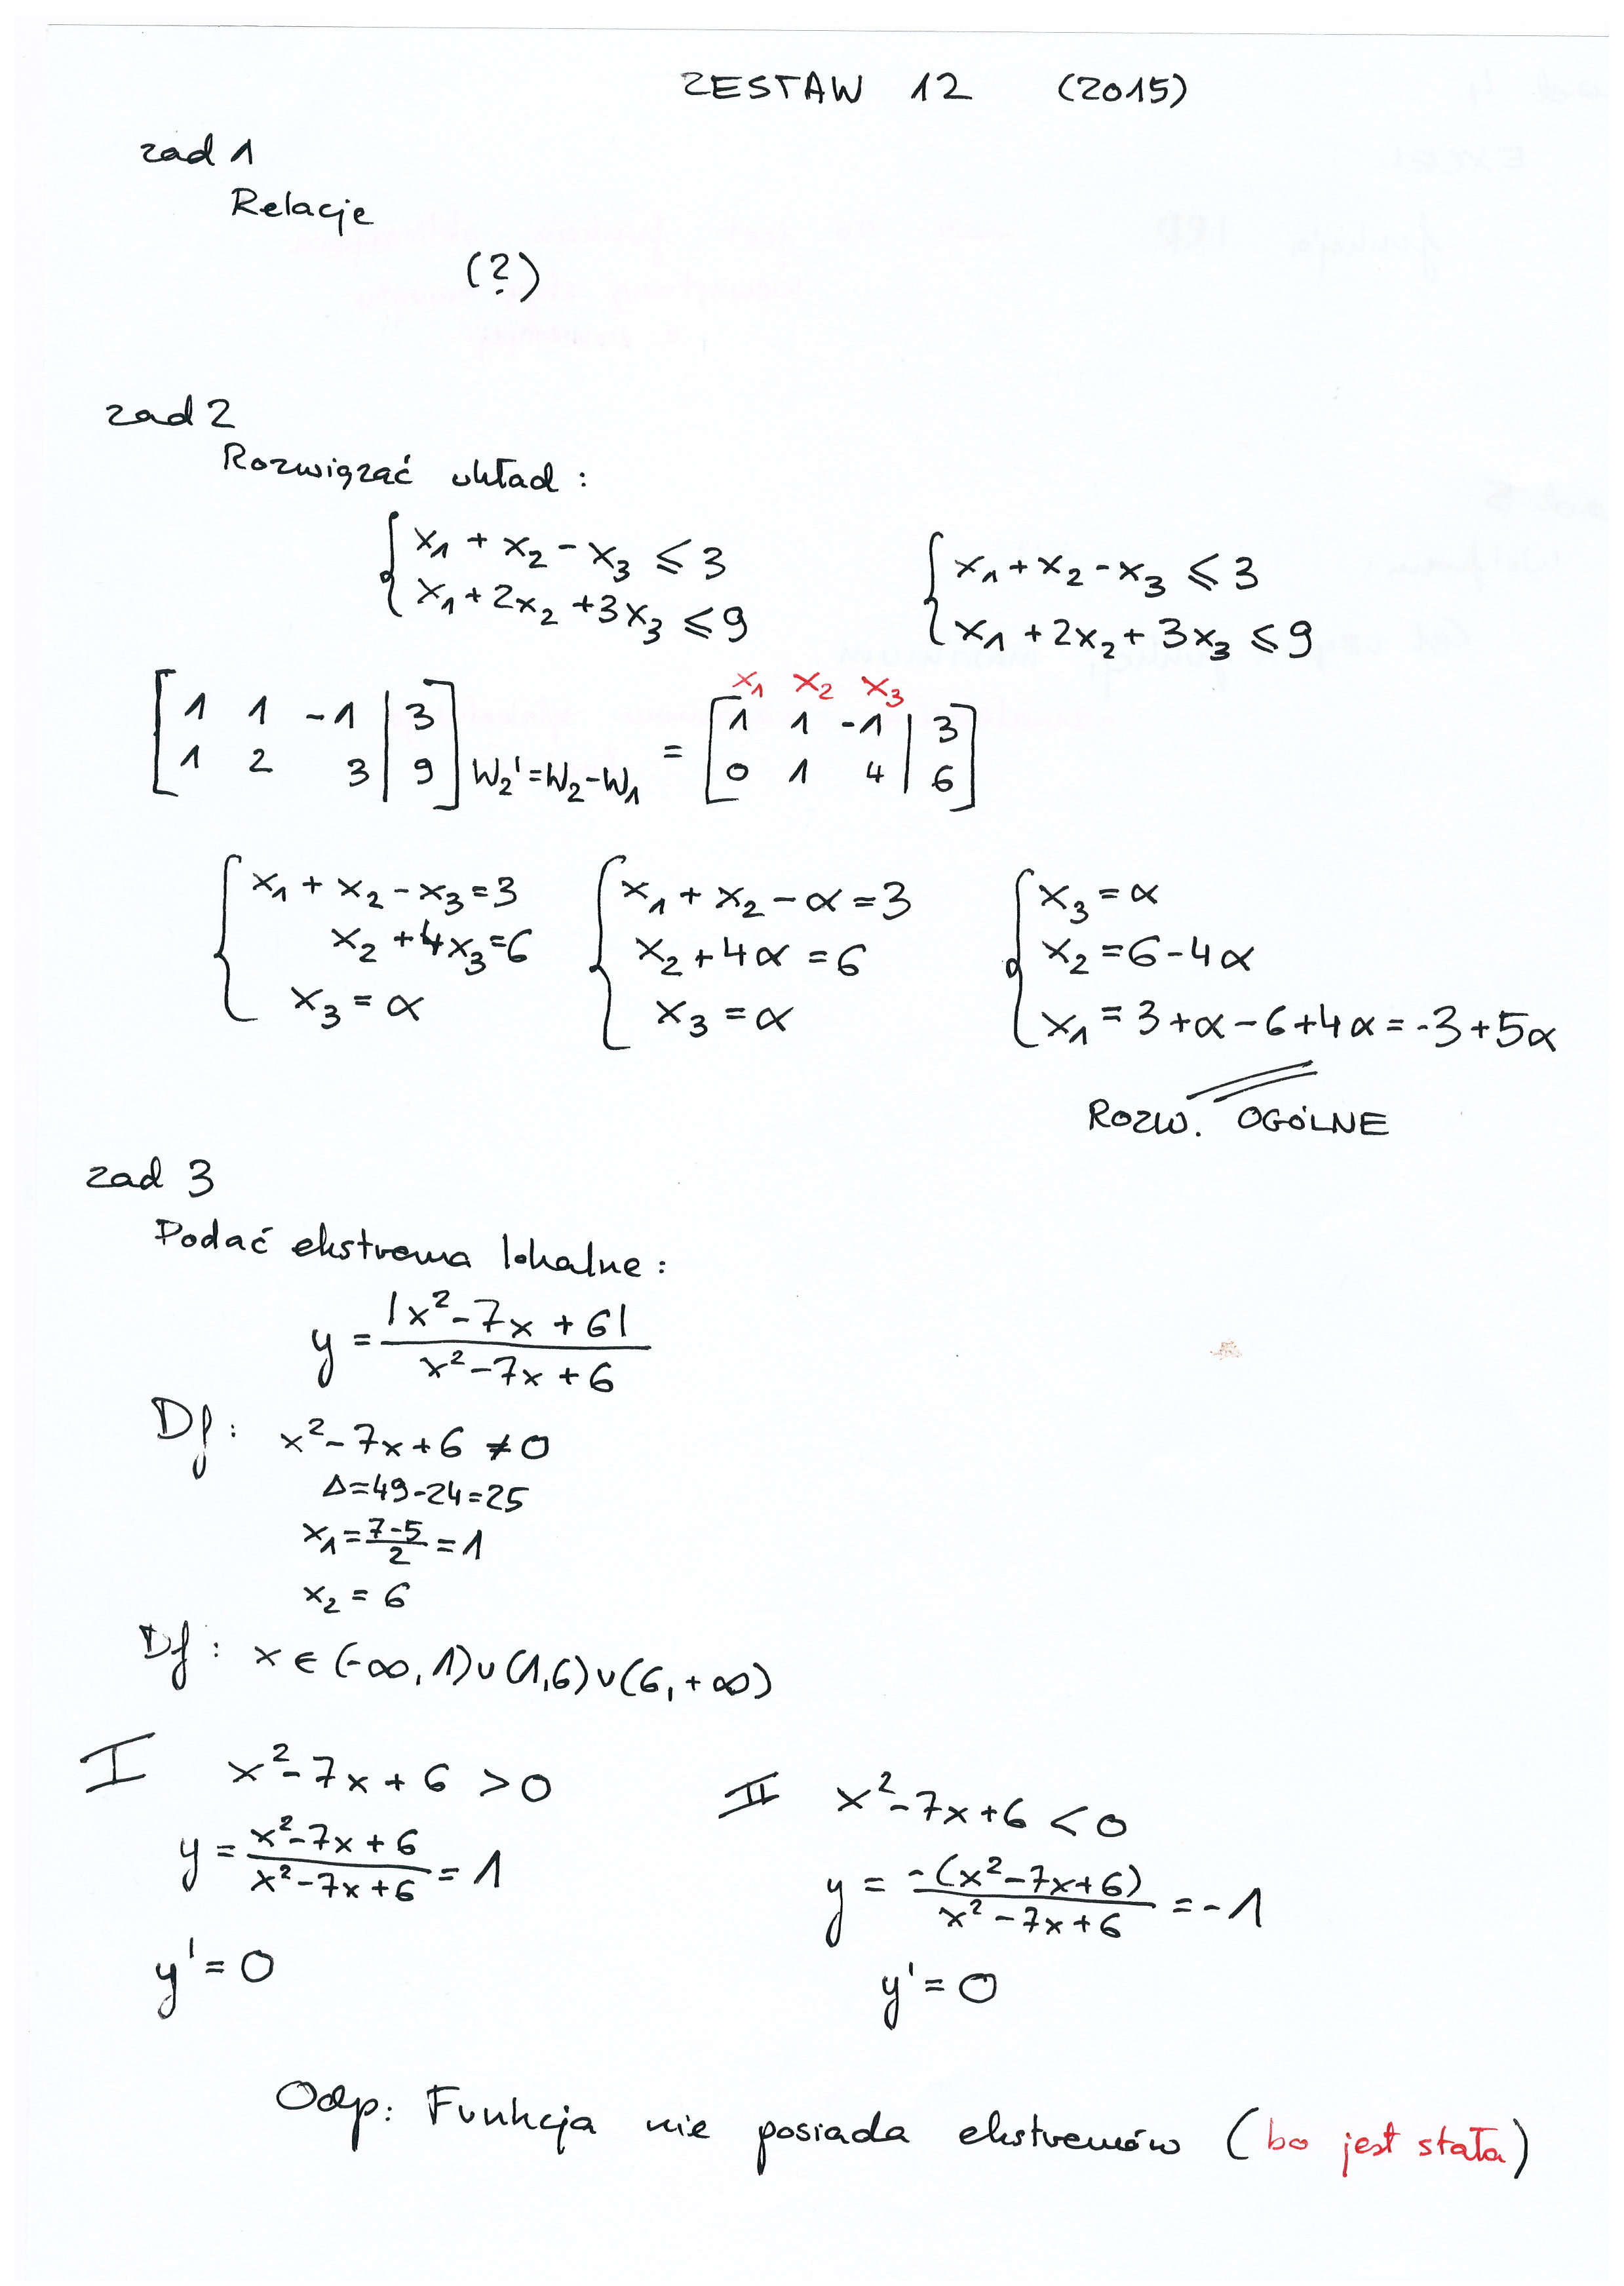 ZESTAW 12 (2015)
zad 1
Relacje
(?)
zad 2
Rozwiązać układ :
{ x₁ + x₂ - x₃ ≤ 3    { x₁ + x₂ - x₃ ≤ 3
{ x₁ + 2x₂ + 3x₃ ≤ 9    { x₁ + 2x₂ + 3x₃ ≤ 9
x₁ x₂ x₃
[ 1 1 -1 | 3 ]    [ 1 1 -1 | 3 ]
[ 1 2 3 | 9 ] W₂' = W₂ - W₁ = [ 0 1 4 | 6 ]
{ x₁ + x₂ - x₃ = 3    { x₁ + x₂ - α = 3    { x₃ = α
{ x₂ + 4x₃ = 6    { x₂ + 4α = 6    { x₂ = 6 - 4α
{ x₃ = α    { x₃ = α    { x₁ = 3 + α - 6 + 4α = -3 + 5α
ROZW. OGÓLNE
zad 3
Podać ekstrema lokalne :
y = |x² - 7x + 6| / x² - 7x + 6
Df : x² - 7x + 6 ≠ 0
Δ = 49 - 24 = 25
x₁ = 7-5 / 2 = 1
x₂ = 6
Df : x ∈ (-∞, 1) ∪ (1,6) ∪ (6, +∞)
I x² - 7x + 6 > 0    II x² - 7x + 6 < 0
y = x² - 7x + 6 / x² - 7x + 6 = 1    y = -(x² - 7x + 6) / x² - 7x + 6 = -1
y' = 0    y' = 0
Odp: Funkcja nie posiada ekstremów (bo jest stała)